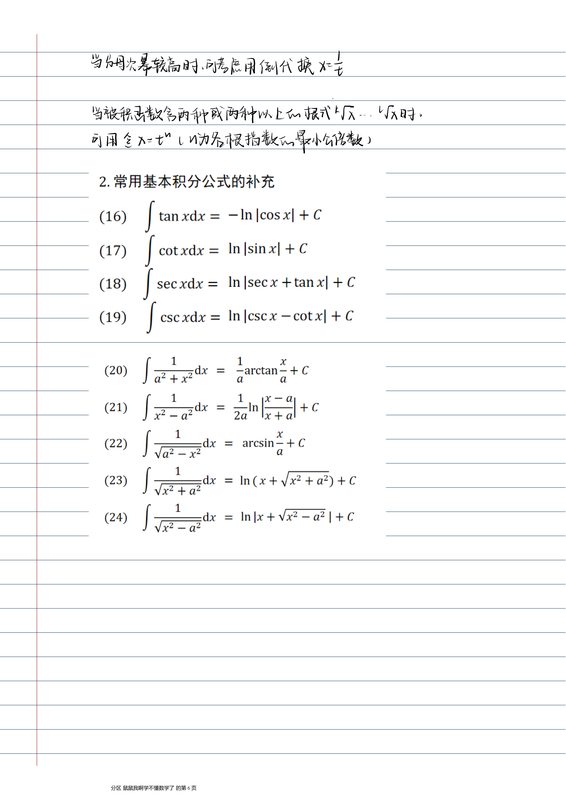 当分母次幂较高时，可考虑用倒代换 x=1/t
当被积函数含两种或两种以上的根式 ᵏ√x … ˡ√x时，
可用令 x=tⁿ（n为各根指数的最小公倍数）
2. 常用基本积分公式的补充
(16) ∫ tan xdx = −ln |cos x| + C
(17) ∫ cot xdx = ln |sin x| + C
(18) ∫ sec xdx = ln |sec x + tan x| + C
(19) ∫ csc xdx = ln |csc x − cot x| + C
(20) ∫ 1/(a² + x²) dx = 1/a arctan x/a + C
(21) ∫ 1/(x² − a²) dx = 1/2a ln |(x − a)/(x + a)| + C
(22) ∫ 1/√(a² − x²) dx = arcsin x/a + C
(23) ∫ 1/√(x² + a²) dx = ln ( x + √(x² + a²) ) + C
(24) ∫ 1/√(x² − a²) dx = ln |x + √(x² − a²) | + C
分区 鼠鼠我啊学不懂数学了 的第 6 页